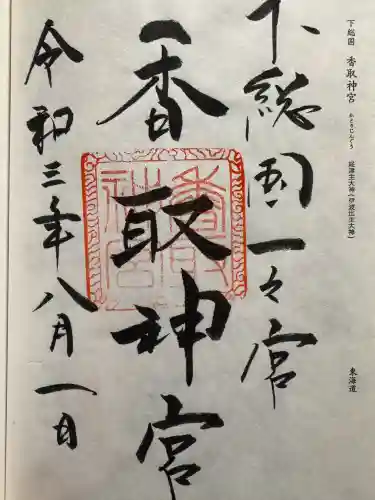 下総国 香取神宮 かとりじんぐう 経津主大神(伊波比主大神) 東海道
下総国一之宮
香取神宮
令和三年八月一日
香取神宮